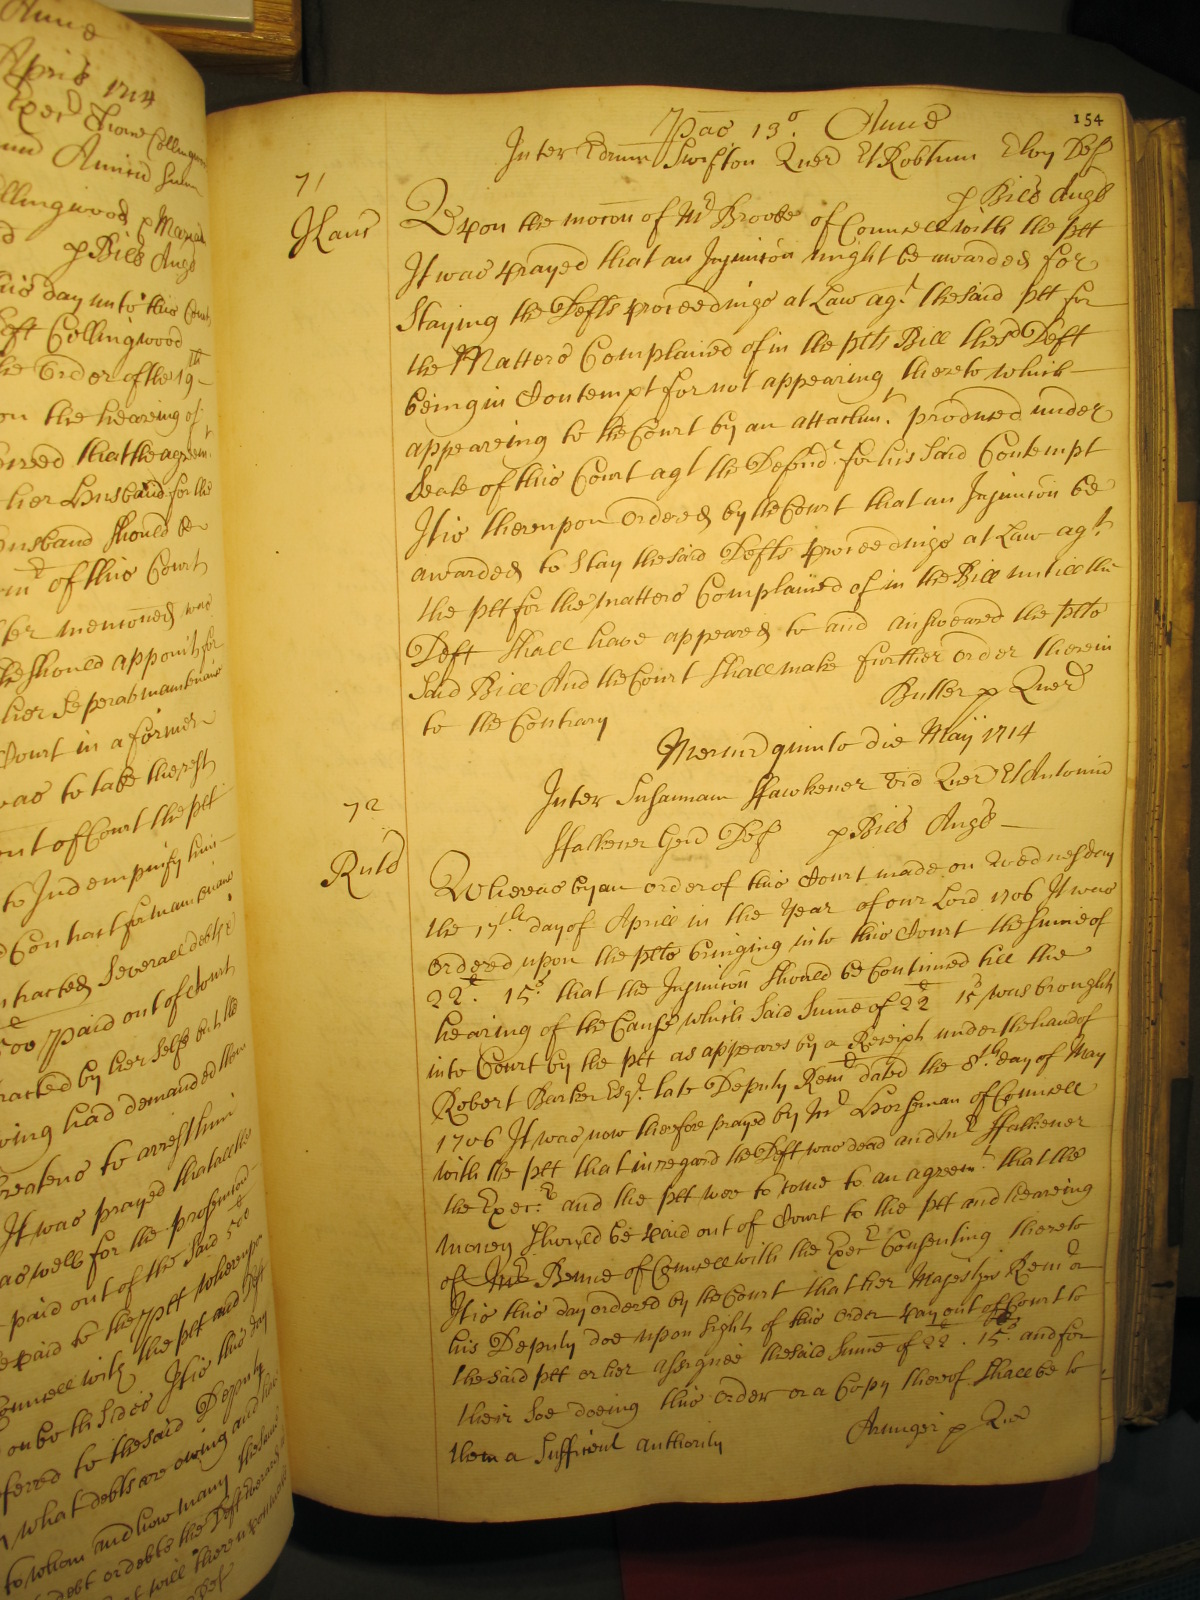 Anne
April 1714
p Bill Angl
this day unto this Court
Deft Collingwood
the Order of the 19th
on the heareing of
that the agreem.t
her Husband for the
Husband should be
of this Court
mencioned was
he should appoint for
her Seperate maintenance
Court in a former
was to take the rest
out of Court the ptt
to Indempnify him
Contract for maintenance
Contracted Severall debts &
500 paid out of Court
by her selfe but the
had demanded them
threatens to arrest him
It was prayed that all the
as well for the
paid out of the said 500
paid to the ptt whereupon
Councell with the ptt and Deft
on both sides It is this day
referred to the said Deputy
what debts are owing and
to whom and how many the same
154
Pas 13o. Anne
Inter Edrum Swifton Quer Et Robtum Eloy Def
p Bill Angl
71
Hanc
Upon the mocon of Mr Brooke of Councell with the ptt
It was prayed that an Injuncon might be awarded for
Staying the Defts proceedings at Law agt. the said ptt for
the Matters Complained of in the ptts Bill the sd Deft
being in Contempt for not appearing thereto which
appeareing to the Court by an attachmt. produced under
Seale of this Court agt the Defendt. for his said Contempt
It is thereupon Ordered by the Court that an Injuncon be
awarded to Stay the said Defts proceedings at Law agt.
the ptt for the matters Complained of in the Bill untill the
Deft Shall have appeared to and answeared the ptts
said Bill And the Court shall make further order therein
to the Contrary
Butler p Quer
Mercur quinto die Maij 1714
72
Inter Susannam ffawkener Vid Quer Et Antonium
ffalkener Gen Def p Bill Angl
Whereas by an order of this Court made on Wednesday
the 17th day of Aprill in the Year of our Lord 1706 It was
ordered upon the ptts bringing into this Court the Sume of
22l. 15s. that the Injuncon should be Continued till the
hearing of the Cause which said Sume of 22l 15s was brought
into Court by the ptt as appeares by a Receipt under the hand of
Robert Barker Esqr. late Deputy Remr dated the 8th. day of May
1706 It was now therefore prayed by Mr Horseman of Councell
with the ptt that in regard the Deft was dead and Mr ffalkener
the Execr. and the ptt were to come to an agreemt. that the
money should be paid out of Court to the ptt and heareing
of Mr Benne of Councell with the Execr Consenting thereto
It is this day ordered by the Court that her Majesties Remr or
his Deputy doe upon Sight of this Order pay out of Court to
the said ptt or her assignes the said Sume of 22l. 15s. and for
their Soe doeing this order or a Copy thereof shall be to
them a Sufficient authority
Armiger p Quer